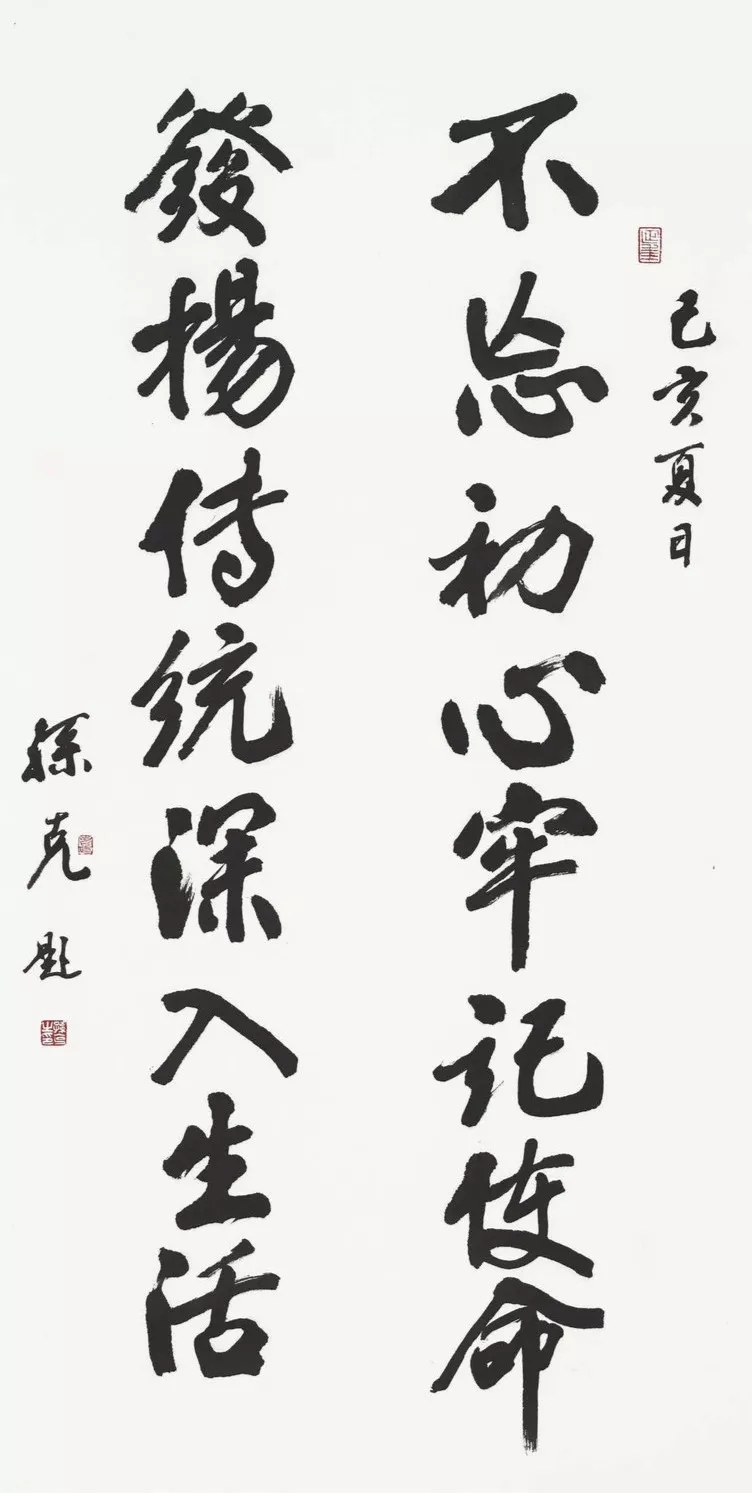 己亥夏日
不忘初心牢记使命
發揚传統深入生活
孫克題